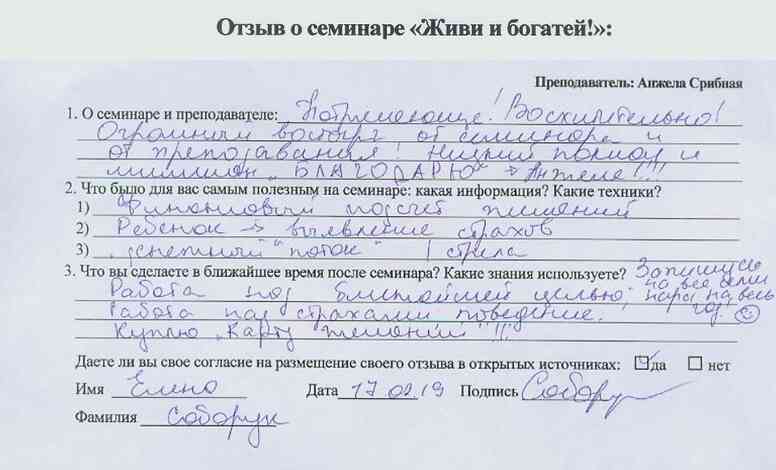 Отзыв о семинаре «Живи и богатей!»:
Преподаватель: Анжела Срибная
1. О семинаре и преподавателе: Потрясающе! Восхитительно!
Огромный восторг от семинара и
от преподавания! Низкий поклон и
миллион „БЛАГОДАРЮ" → Анжеле!!!
2. Что было для вас самым полезным на семинаре: какая информация? Какие техники?
1) Финансовый подсчёт желаний
2) Ребенок → выявление страхов
3) „денежный "поток" | стрела
3. Что вы сделаете в ближайшее время после семинара? Какие знания используете? Запишусь
на все
Работа над ближайшей целью. на весь
Работа над страхами поведение. год!
Куплю „Карту желаний"!!!
Даете ли вы свое согласие на размещение своего отзыва в открытых источниках: да нет
Имя Елена Дата 17 02 19 Подпись Соборук
Фамилия Соборук